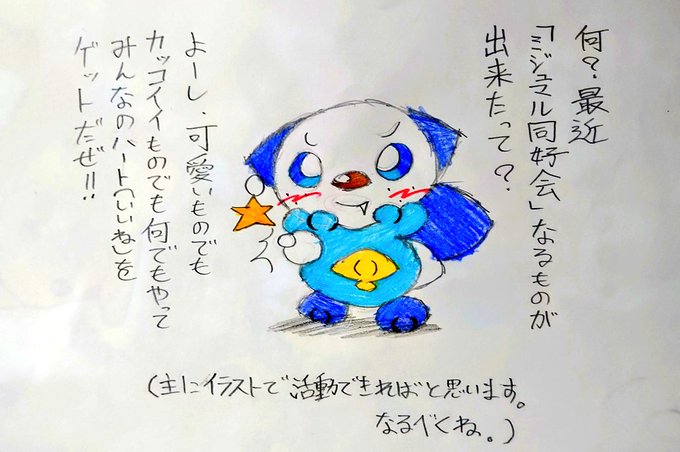 何?、最近
「ミジュマル同好会」なるものが
出来たって?
よーし、可愛いものでも
カッコイイものでも何でもやって
みんなのハートの「いいね」を
ゲットだぜ!!
(主にイラストで活動できればと思います。
なるべくね。)